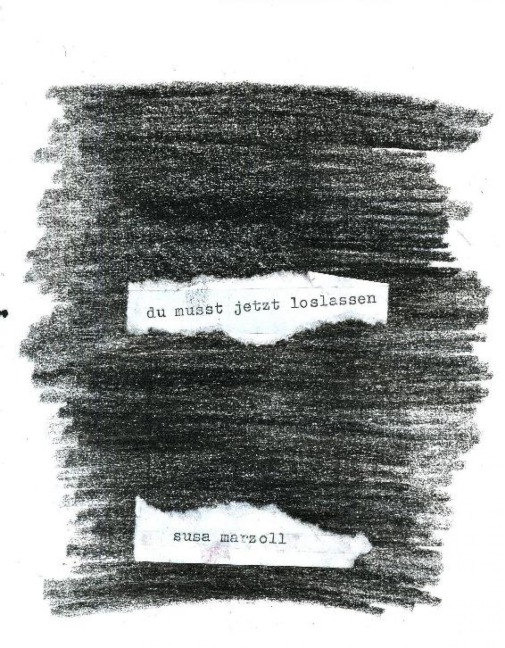 du musst jetzt loslassen
susa marzoll